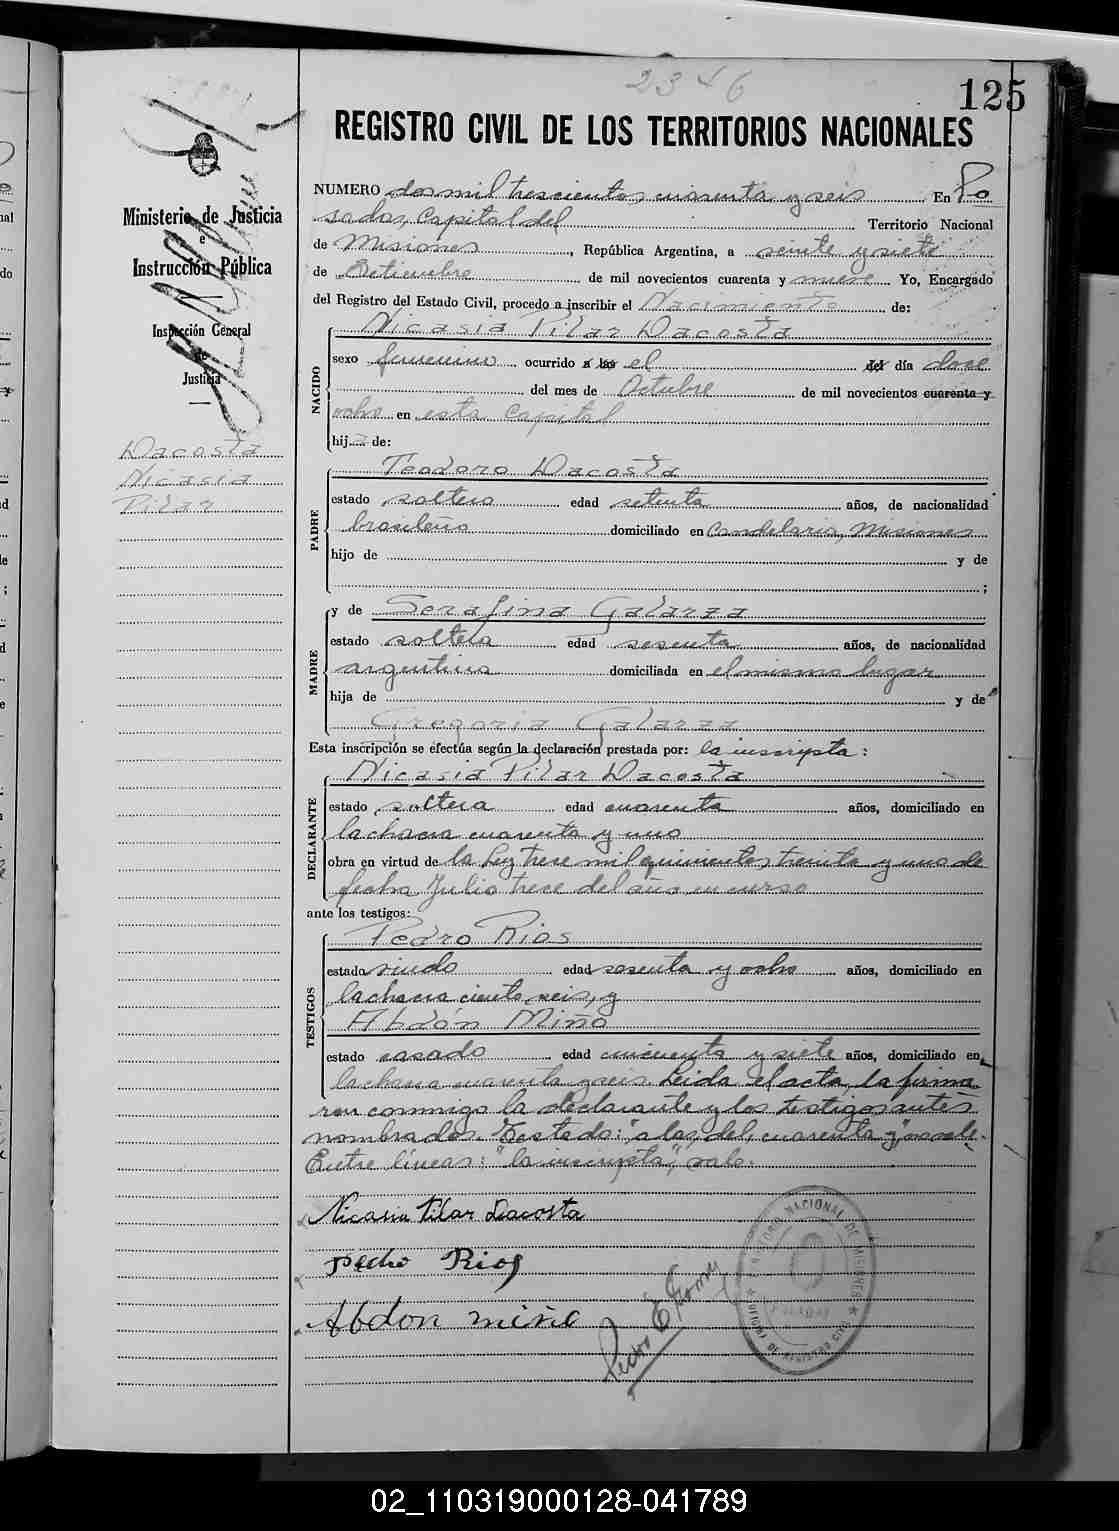 2346
125
REGISTRO CIVIL DE LOS TERRITORIOS NACIONALES
Ministerio de Justicia
e
Instrucción Pública
Inspección General
de
Justicia
Dacosta
Nicasia
Pilar
NUMERO dos mil trescientos cuarenta y seis En Po
sadas, Capital del Territorio Nacional
de Misiones, República Argentina, a veinte y siete
de Setiembre de mil novecientos cuarenta y nueve Yo, Encargado
del Registro del Estado Civil, procedo a inscribir el Nacimiento de:
NACIDO
Nicasia Pilar Dacosta
sexo femenino ocurrido a las el del día doce
del mes de Octubre de mil novecientos cuarenta y
ocho en esta Capital
hija de:
PADRE
Teodoro Dacosta
estado soltero edad setenta años, de nacionalidad
brasileño domiciliado en Candelaria, Misiones
hijo de y de
;
MADRE
y de Serafina Galarza
estado soltera edad sesenta años, de nacionalidad
argentina domiciliada en el mismo lugar
hija de y de
Gregoria Galarza
Esta inscripción se efectúa según la declaración prestada por: la inscripta:
DECLARANTE
Nicasia Pilar Dacosta
estado soltera edad cuarenta años, domiciliado en
la chacra cuarenta y uno
obra en virtud de la Ley trece mil quinientos treinta y uno de
fecha Julio trece del año en curso
ante los testigos:
TESTIGOS
Pedro Rios
estado viudo edad sesenta y ocho años, domiciliado en
la chacra ciento seis, y
Abdón Miño
estado casado edad cincuenta y siete años, domiciliado en
la chacra cuarenta y seis. Leida el acta, la firma-
ron conmigo la declarante y los testigos antes
nombrados. Testado: "a las, del, cuarenta y" no vale.
Entre líneas: "la inscripta", vale.
Nicasia Pilar Dacosta
Pedro Rios
Abdon miño
TERRITORIO NACIONAL DE MISIONES
OFICINA DE REGISTRO CIVIL
02_110319000128-041789